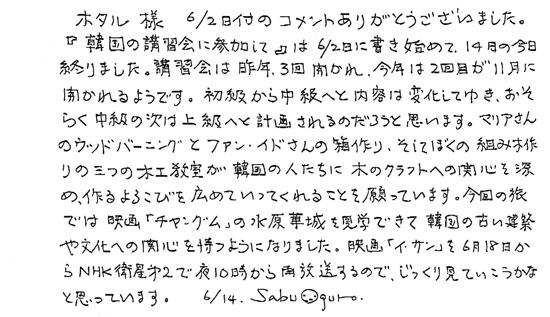 ホタル 様　6/2日付のコメントありがとうございました。
『韓国の講習会に参加して』は 6/2日に書き始めて、14日の今日
終りました。講習会は昨年、3回開かれ、今年は2回目が11月に
開かれるようです。初級から中級へと内容は変化してゆき、おそ
らく中級の次は上級へと計画されるのだろうと思います。マリアさん
のウッドバーニングとファン・イドさんの箱作り、そしてぼくの組み木作
りの三つの木工教室が韓国の人たちに木のクラフトへの関心を深
め、作るよろこびを広めていってくれることを願っています。今回の旅
では映画「チャングム」の水原華城を見学できて韓国の古い建築
や文化への関心を持つようになりました。映画「イ・サン」を6月18日か
らNHK衛星第2で夜10時から再放送するので、じっくり見ていこうかな
と思っています。　6/14. Sabu Oguro.